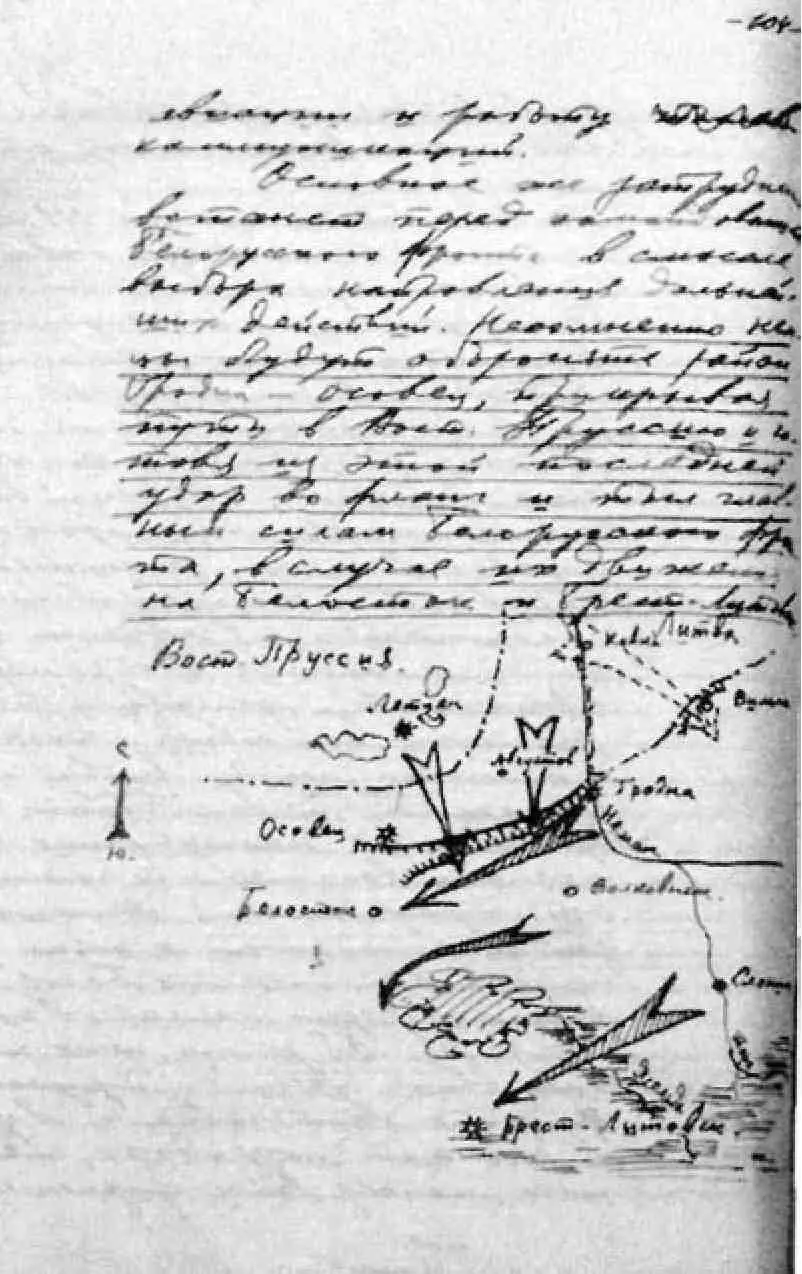 -604-
авиации и работу
коммуникаций.
Основное же затрудне
встанет перед
Белорусского фронта в смысле
выбора направления дальней-
ших действий. Несомненно нем-
цы будут оборонять район
Гродна - Осовец, прикрывая
пути в Вост. Пруссию и го-
товя из этой последней
удар во фланг и тыл глав-
ным силам Белорусского фро
та, в случае их движения
на Белосток и Брест-Литов
Литва
Ковно
Вост. Пруссия.
Летцен
Вильн
Августов
С
Гродна
Осовец
Неман
Ю.
Волковыск.
Белосток
Слоним
Брест-Литовск